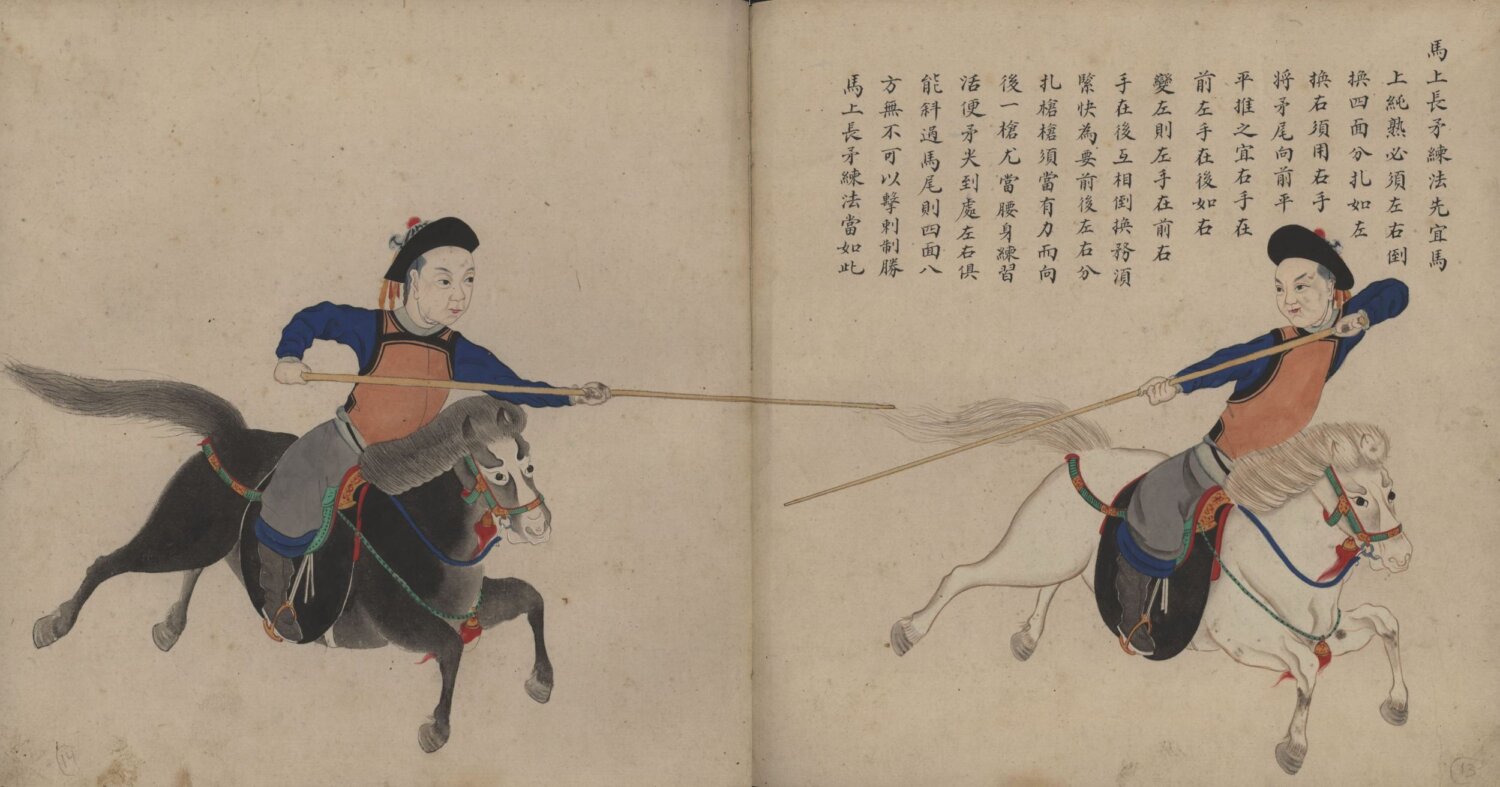 馬上長矛練法先宜馬
上純熟必須左右倒
換四面分扎如左
換右須用右手
將矛尾向前平
平推之宜右手在
前左手在後如右
變左則左手在前右
手在後互相倒換務須
緊快為要前後左右分
扎槍槍須當有力而向
後一槍尤當腰身練習
活便矛尖到處左右俱
能斜過馬尾則四面八
方無不可以擊刺制勝
馬上長矛練法當如此
13
14